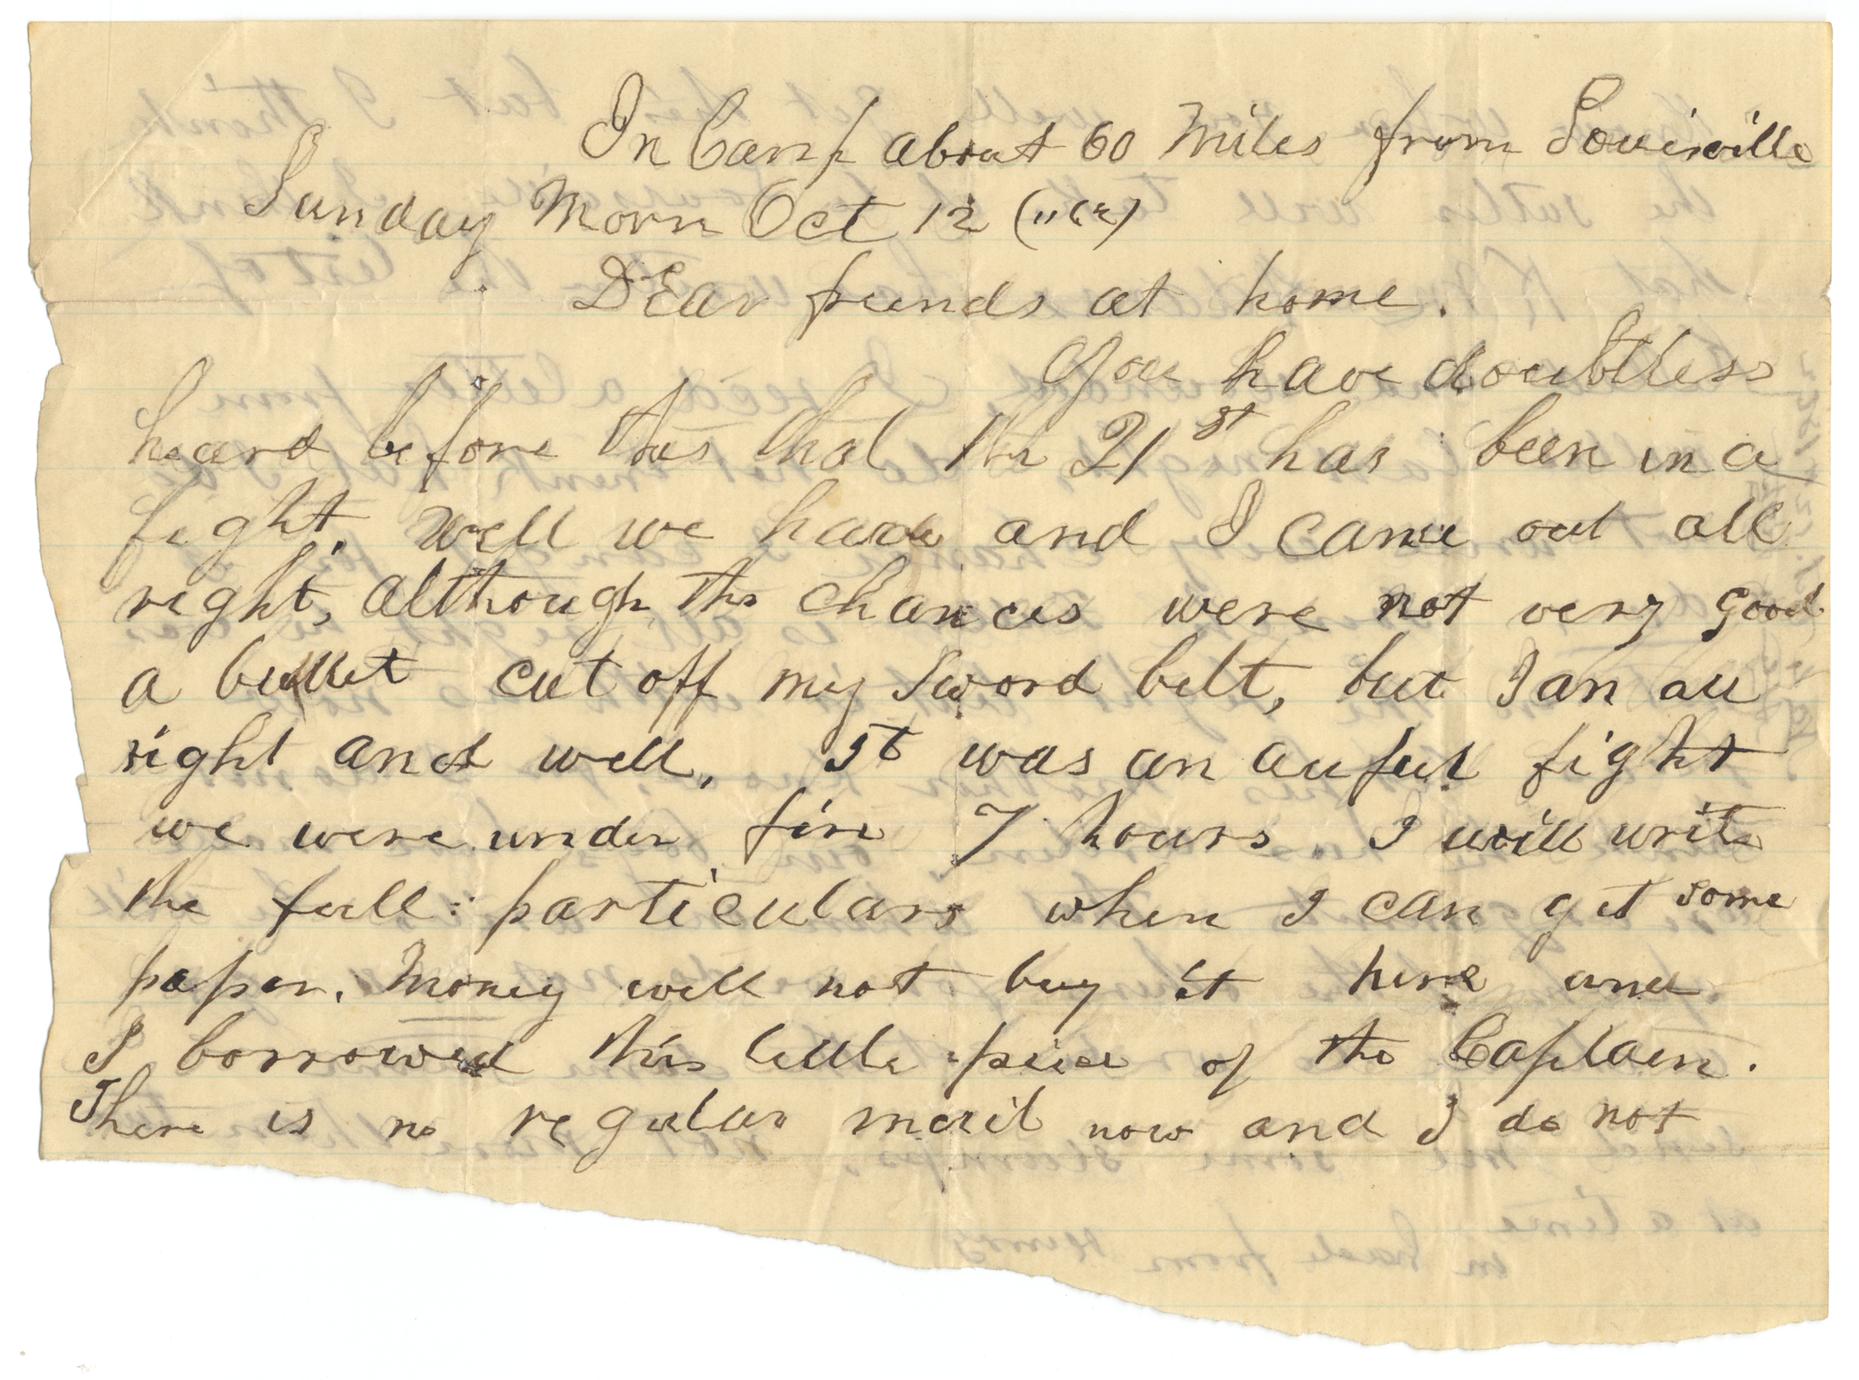 In Camp about 60 Miles from Louisville
Sunday Morn Oct 12
DEar friends at home.
You have doubtless
heard before this that the 21st has been in a
fight. Well we have and I came out all
right, although the chances were not very good
a bullet cut off my Sword belt, but I am all
right and well. It was an auful fight
we were under fire 7 hours. I will write
the full particulars when I can get some
paper. Money will not buy it here and
I borrowed this little piece of the Captain.
There is no regular mail now and I do not